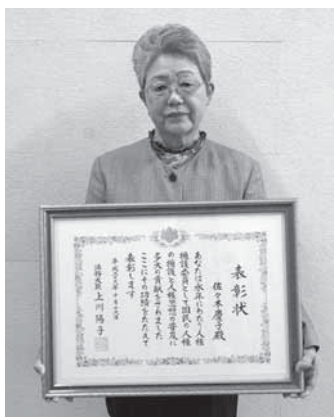 表彰状
佐々木慶子殿
あなたは永年にわたり人権
擁護委員として国民の人権
の擁護と人権思想の普及に
多大の貢献をされました
ここにその功績をたたえて
表彰します
平成二十九年十月十六日
法務大臣 上川陽子